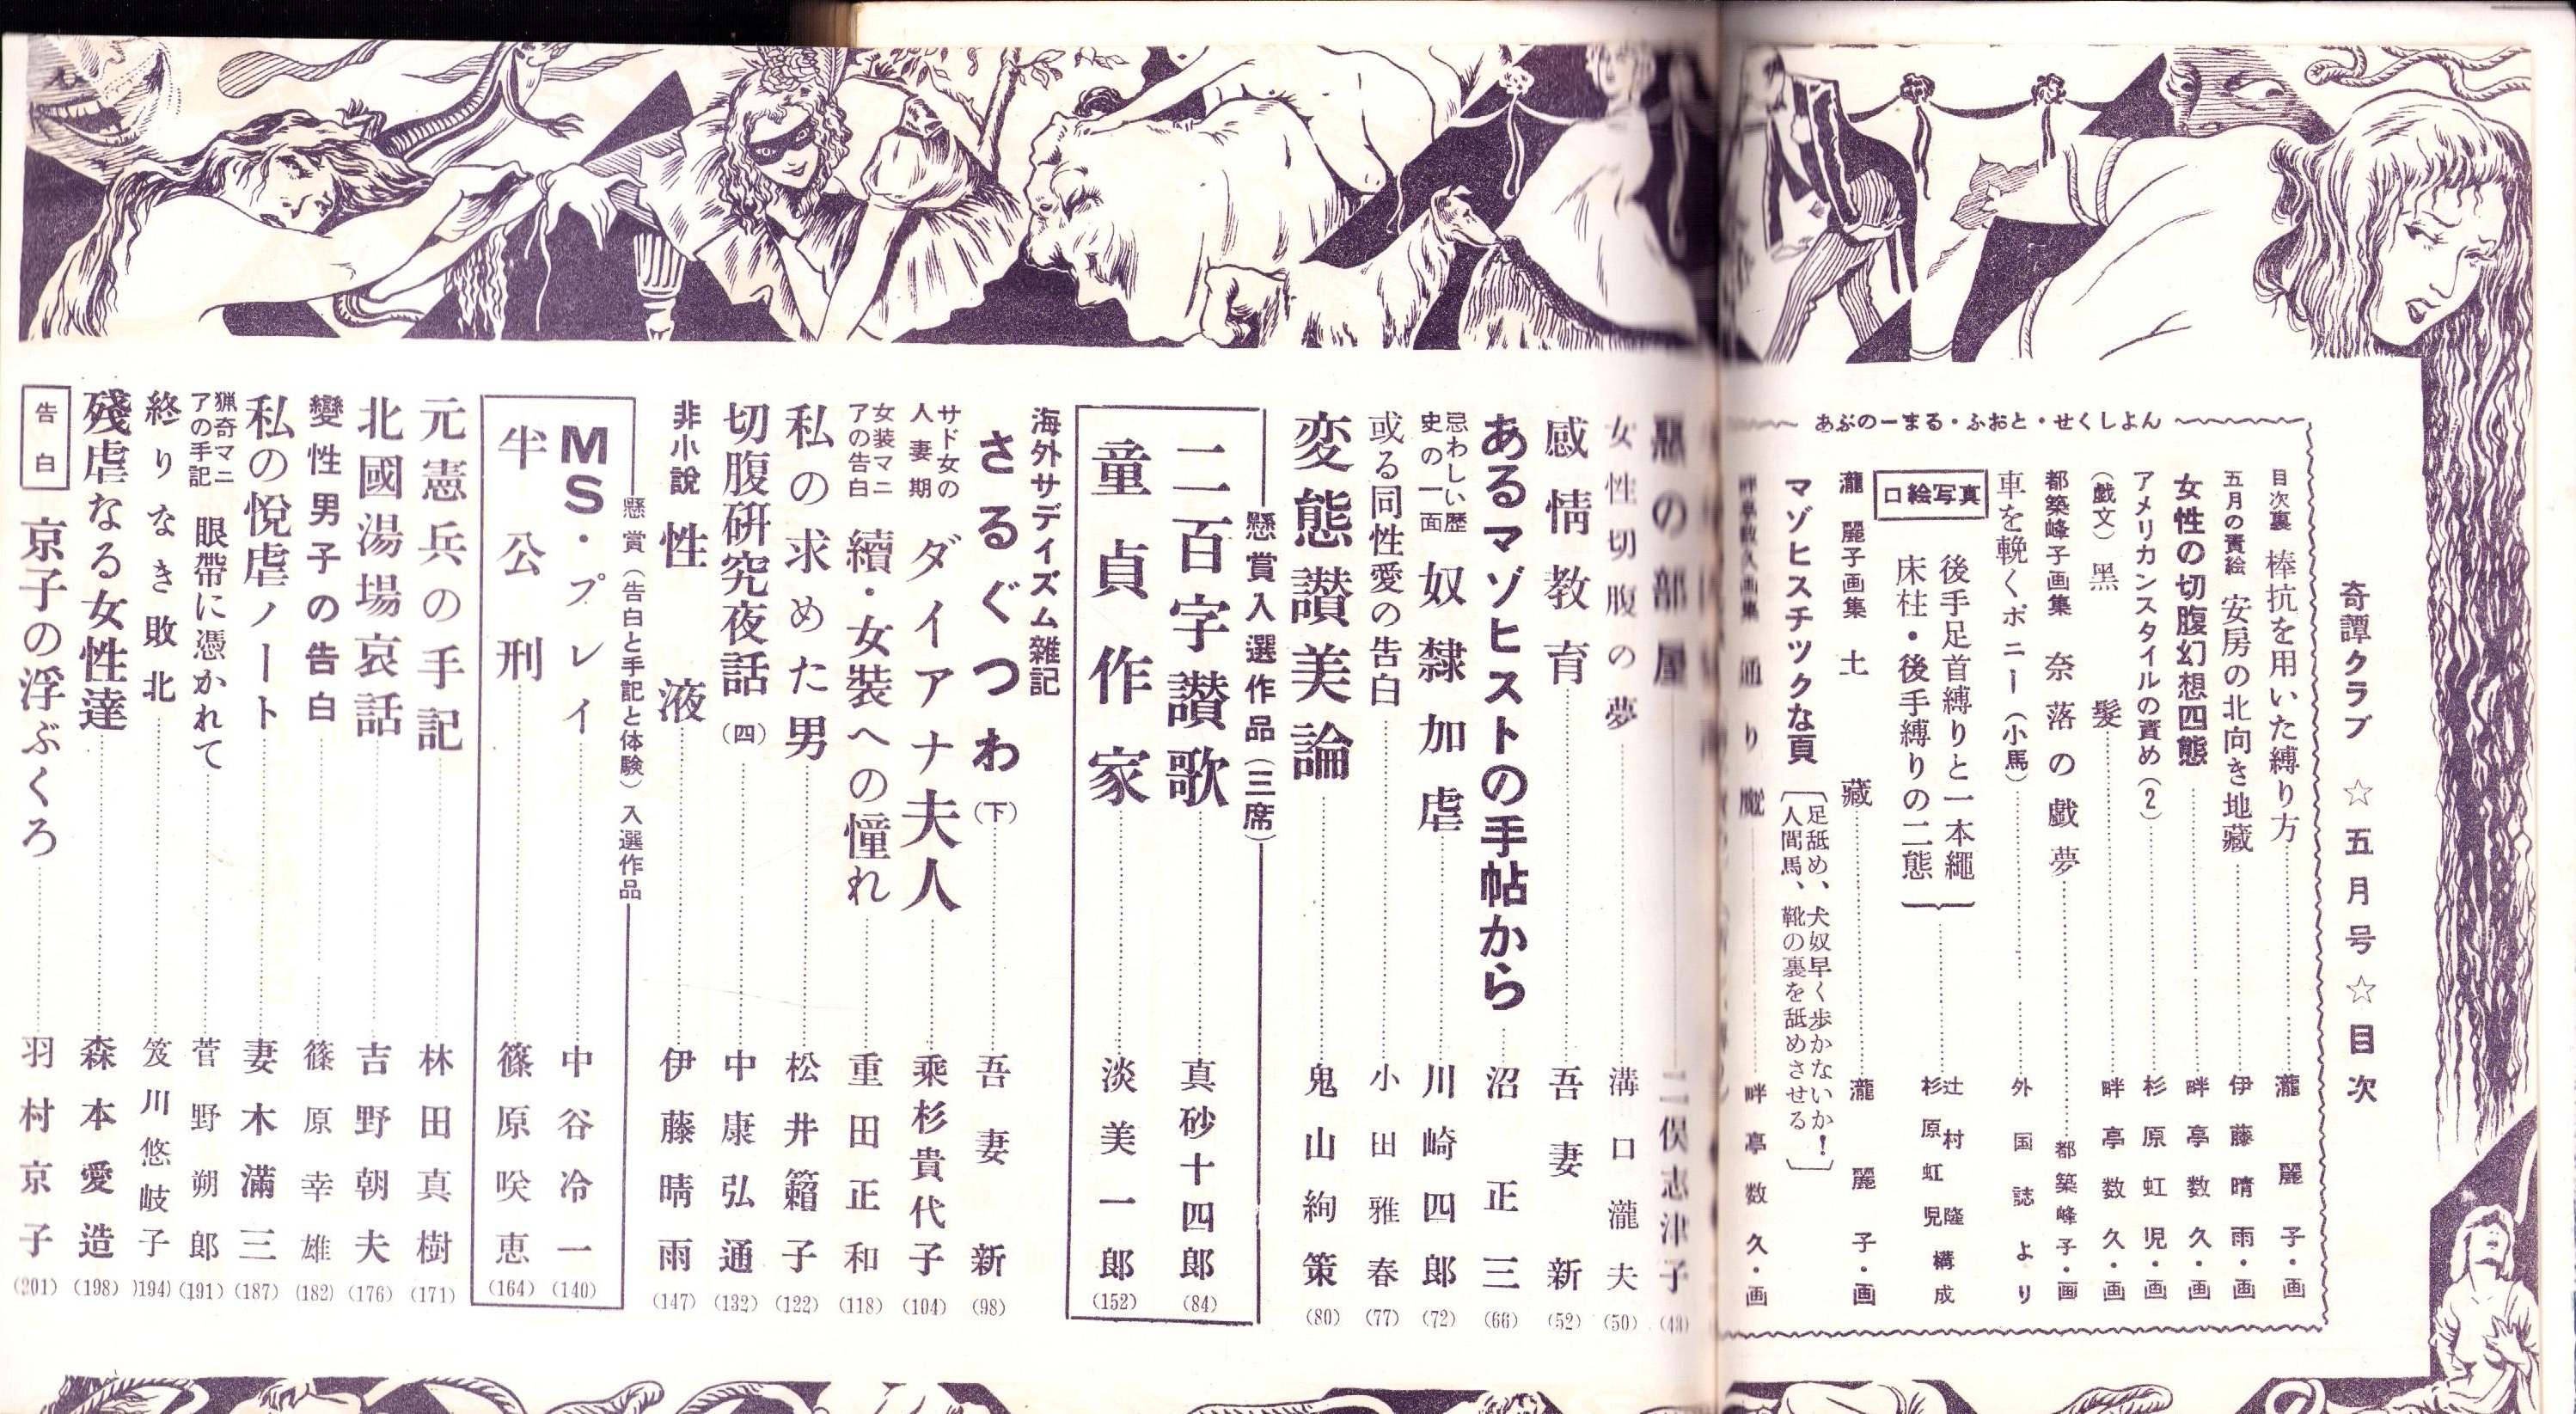 奇譚クラブ ☆五月号☆目次
あぶのーまる・ふおと・せくしよん
目次裏 棒抗を用いた縛り方 瀧麗子・画
五月の責絵 安房の北向き地藏 伊藤晴雨・画
女性の切腹幻想四態 畔亭数久・画
アメリカンスタイルの責め(2) 杉原虹児・画
(戯文) 黑髪 畔亭数久・画
都築峰子画集 奈落の戯夢 都築峰子・画
車を輓くポニー(小馬) 外国誌より
口絵写真
後手足首縛りと一本繩
床柱・後手縛りの二態
辻村隆
杉原虹児
構成
瀧麗子画集 土藏 瀧麗子・画
マゾヒスチックな頁
足舐め、犬奴早く歩かないか!
人間馬、靴の裏を舐めさせる
畔亭数久画集 通り魔 畔亭数久・画
悪の部屋 二俣志津子 (43)
女性切腹の夢 溝口瀧夫 (50)
感情教育 吾妻新 (52)
あるマゾヒストの手帖から 沼正三 (66)
忌わしい歴史の一面 奴隷加虐 川崎四郎 (72)
或る同性愛の告白 小田雅春 (77)
変態讃美論 鬼山絢策 (80)
懸賞入選作品(三席)
二百字讃歌 真砂十四郎 (84)
童貞作家 淡美一郎 (152)
海外サディズム雑記
さるぐつわ(下) 吾妻新 (98)
サド女の人妻期 ダイアナ夫人 乗杉貴代子 (104)
女装マニアの告白 續・女装への憧れ 重田正和 (118)
私の求めた男 松井籟子 (122)
切腹研究夜話(四) 中康弘通 (132)
非小說 性液 伊藤晴雨 (147)
懸賞(告白と手記と体験)入選作品
MS・プレイ 中谷冷一 (140)
半公刑 篠原咲恵 (164)
元憲兵の手記 林田真樹 (171)
北國湯場哀話 吉野朝夫 (176)
變性男子の告白 篠原幸雄 (182)
私の悅虐ノート 妻木満三 (187)
猟奇マニアの手記 眼帶に憑かれて 菅野朔郎 (191)
終りなき敗北 笈川悠岐子 (194)
殘虐なる女性達 森本愛造 (198)
告白 京子の浮ぶくろ 羽村京子 (201)